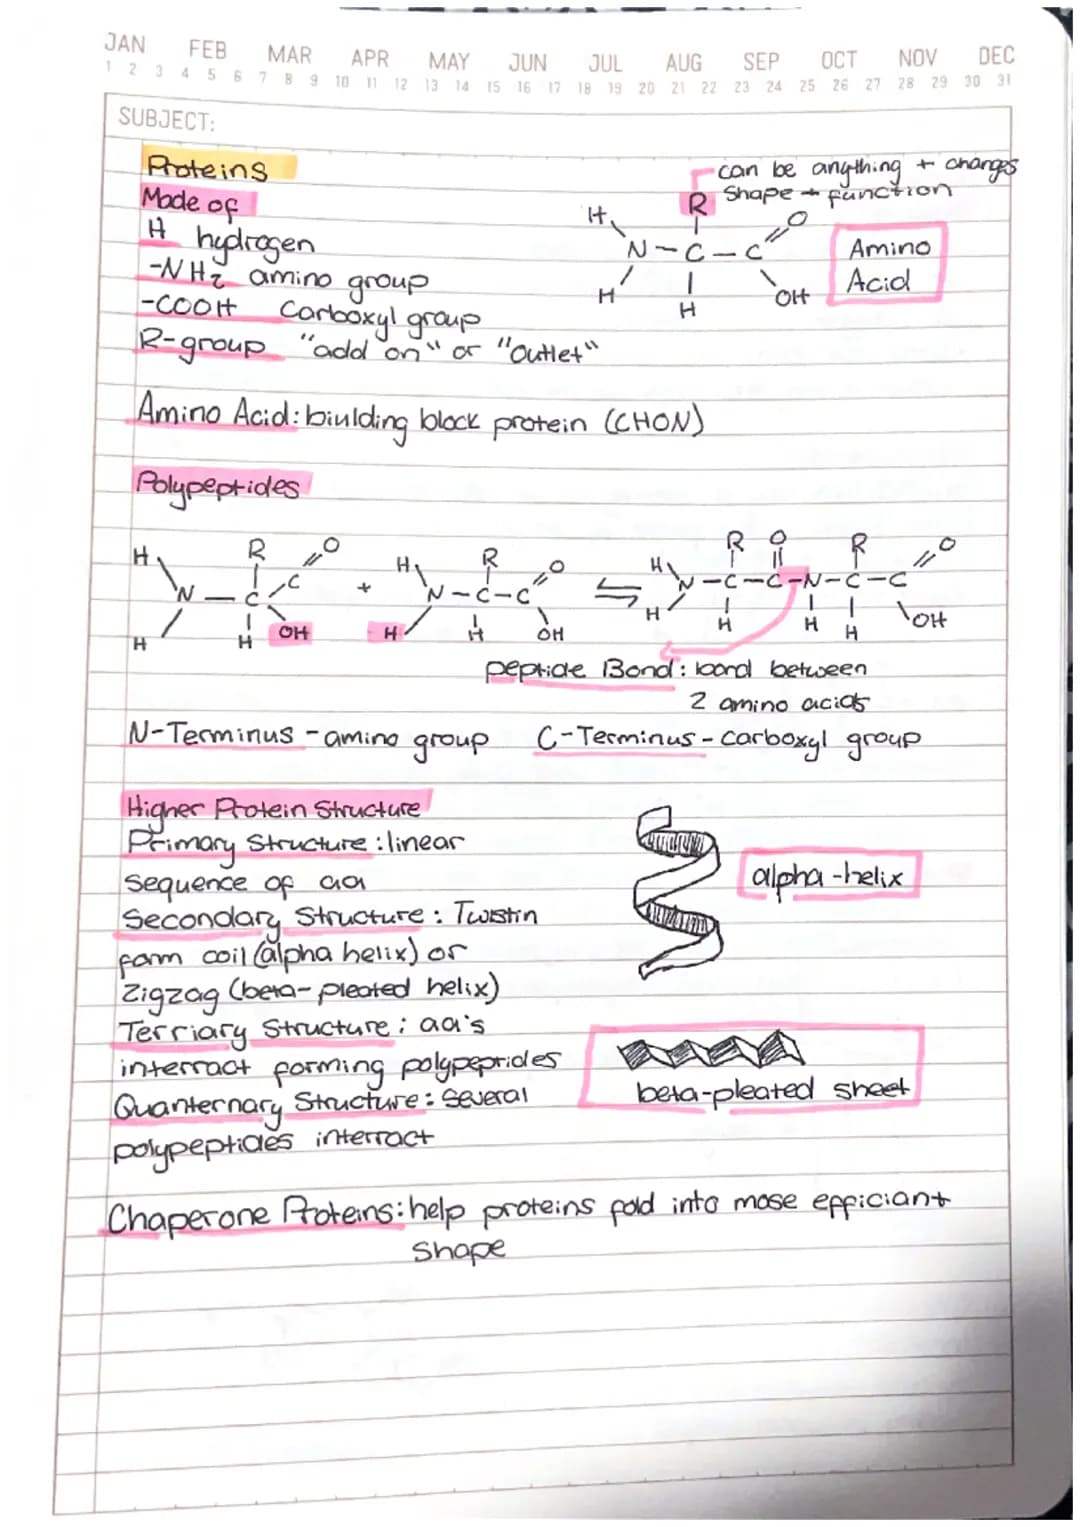 JAN FEB MAR APR MAY JUN JUL AUG SEP OCT NOV DEC
1 2 3 4 5 6 7 8 9 10 11 12 13 14 15 16 17 18 19 20 21 22 23 24 25 26 27 28 29 30 31
SUBJECT:
Proteins
can be anything + changes
Shape + function
Made of
H hydrogen
-NH2 amino group
-COOH Carboxyl group
R-group "add on" or "Outlet"
R
H O
N-C-C
H H OH
Amino
Acid
Amino Acid: biulding block protein (CHON)
Polypeptides
H R O H R O H R O R O
N-C C + N-C-C ⇌ N-C-C-N-C-C
H H OH H H OH H H H H OH
peptide Bond: bond between
2 amino acids
N-Terminus - amino group C-Terminus - carboxyl group
Higher Protein Structure
Primary Structure: linear
Sequence of aa
Secondary Structure: Twistin
form coil (alpha helix) or
Zigzag (beta-pleated helix)
Terriary Structure: aa's
interract forming polypeptides
Quanternary Structure: Several
polypeptides interract
alpha-helix
beta-pleated sheet
Chaperone Proteins: help proteins fold into mose efficiant
Shape